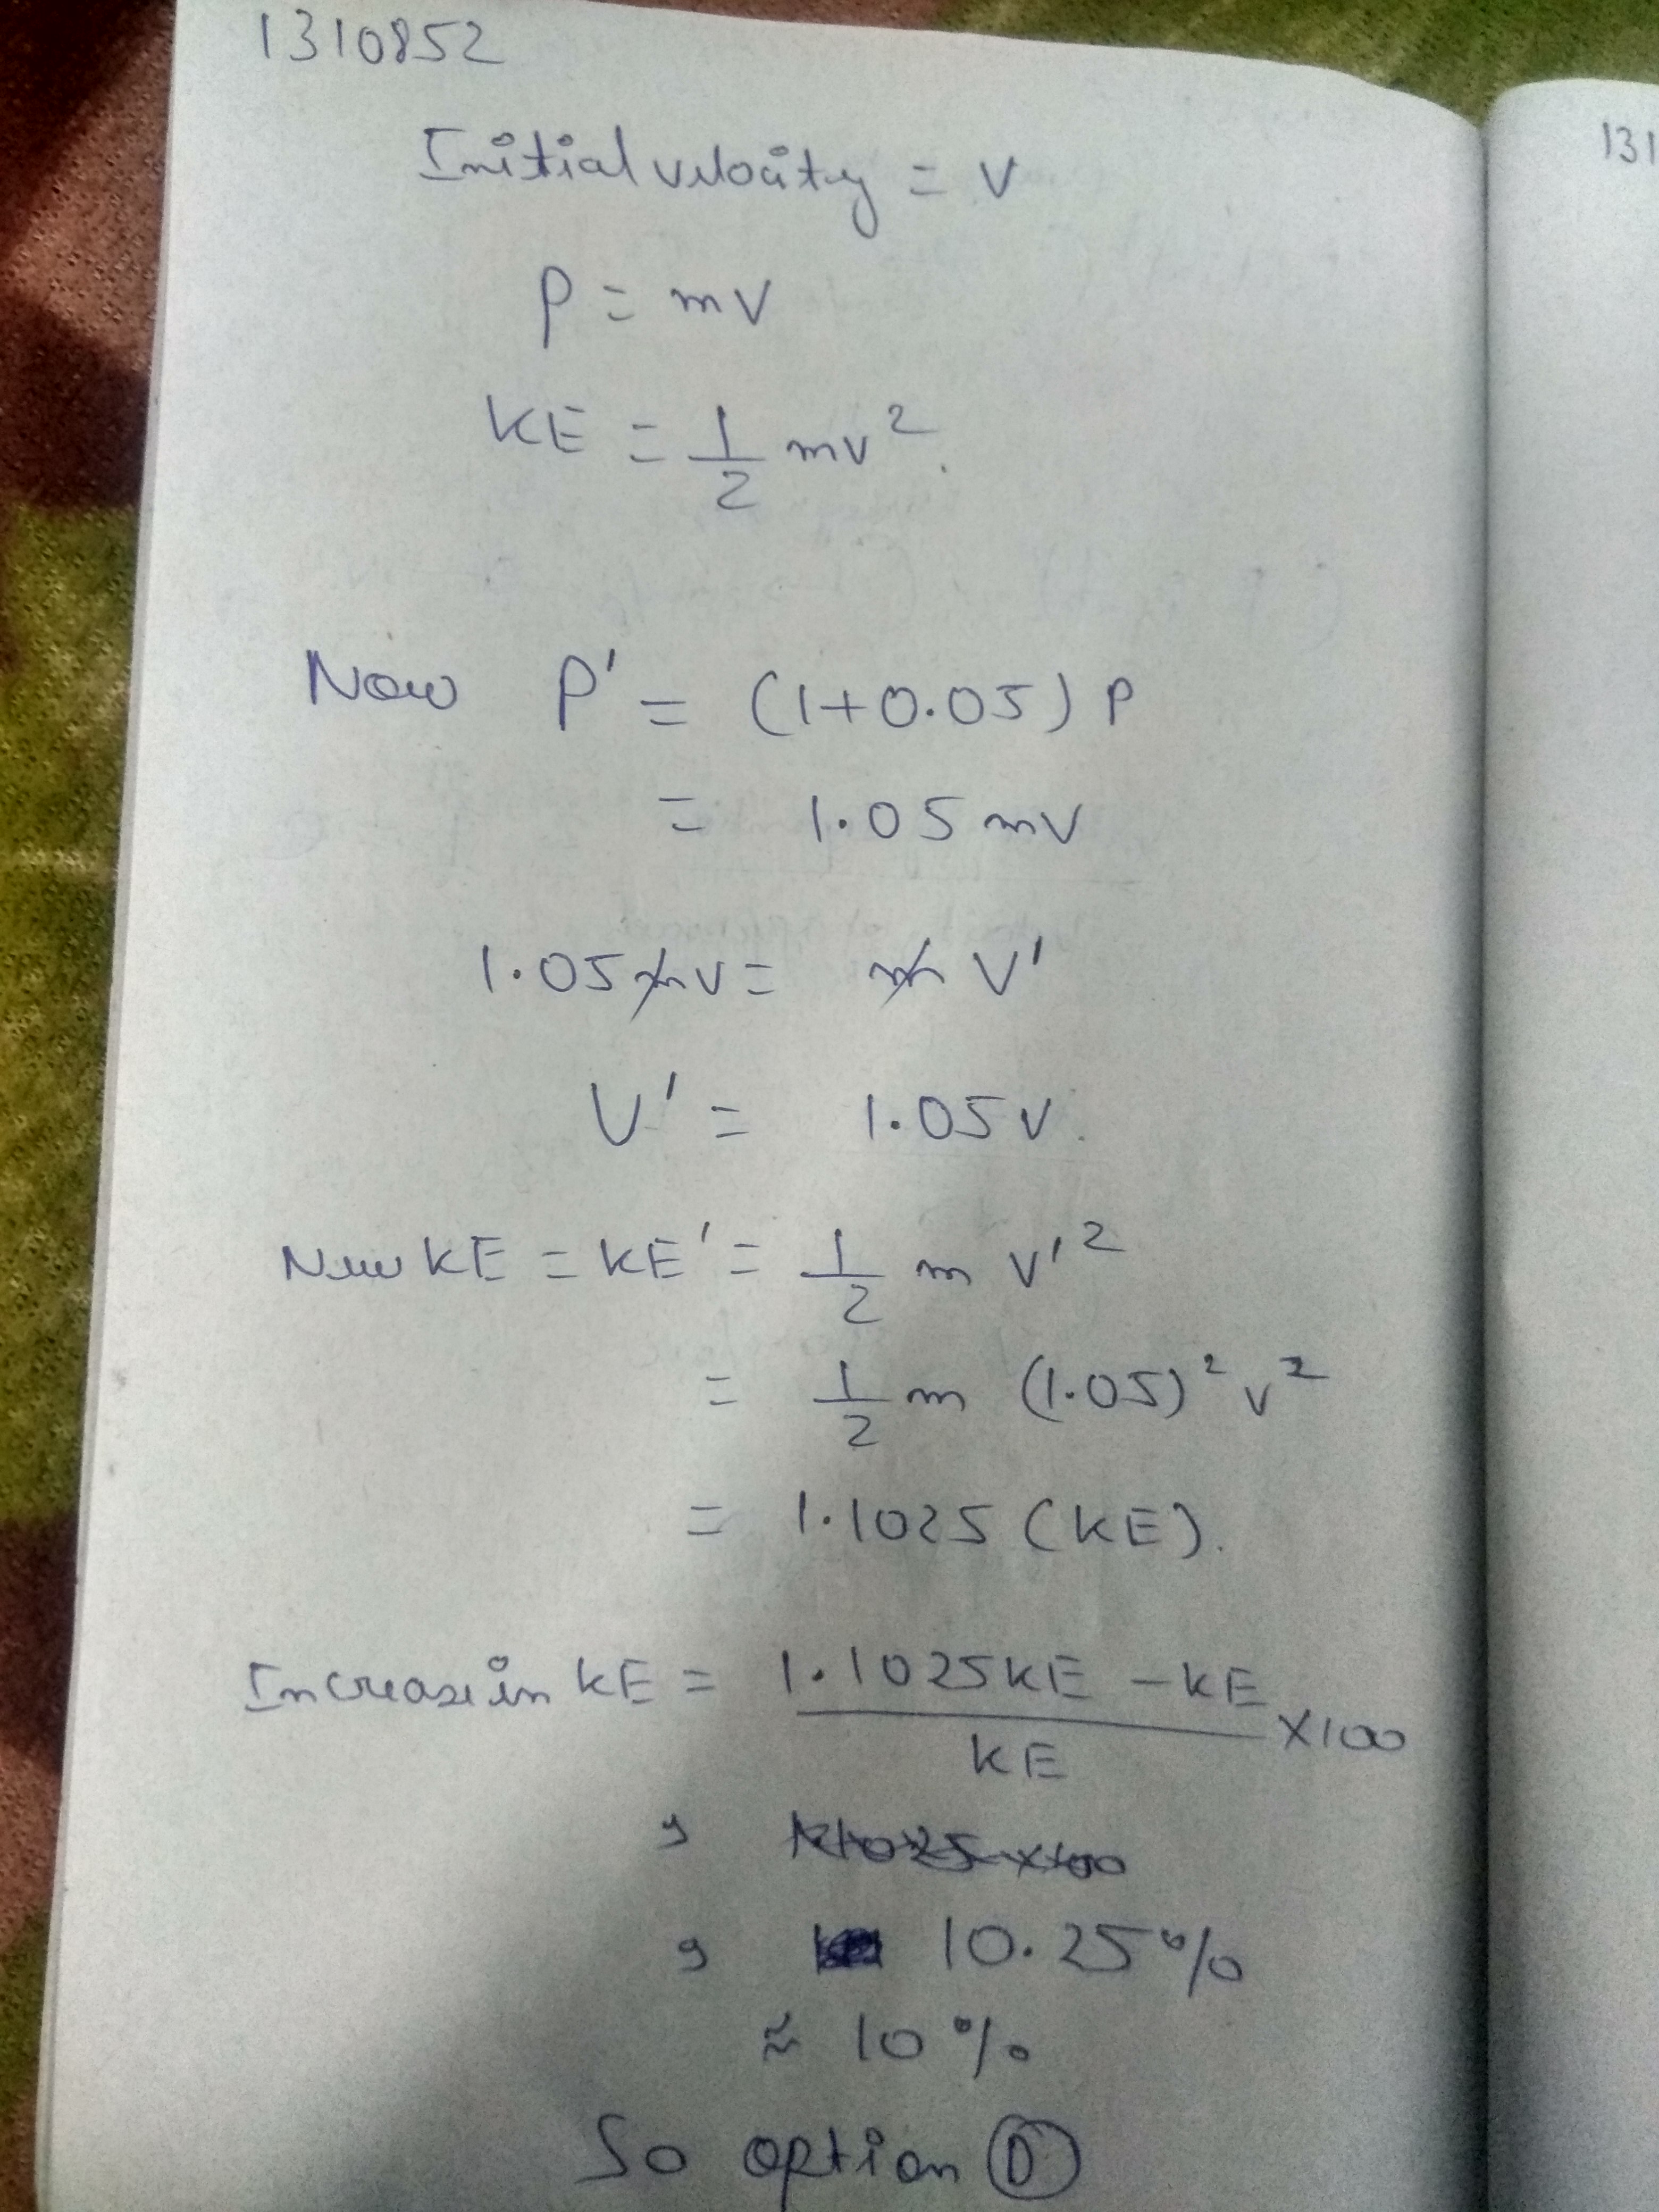 1310852
131
Initial velocity = v
P = mv
KE = 1/2 mv².
Now P' = (1+0.05) P
= 1.05 mv
1.05 mv = m v'
V' = 1.05 v.
New KE = KE' = 1/2 m v'²
= 1/2 m (1.05)² v²
= 1.1025 (KE).
Increase in KE = (1.1025KE - KE)/KE ×100
10.25%
≈ 10%
So option D